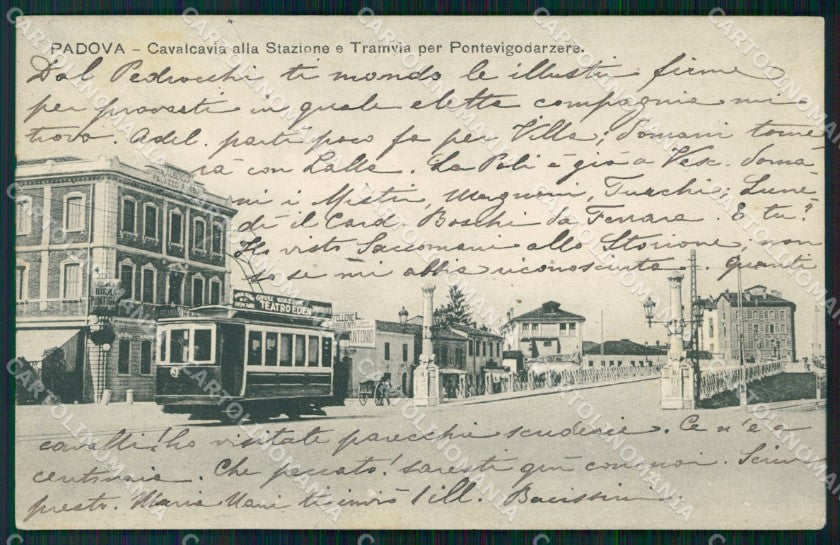 PADOVA - Cavalcavia alla Stazione e Tramvia per Pontevigodarzere.
Dal Pedrocchi ti mando le illustri firme
per provarti in quale eletta compagnia mi
trovo. Adel. partì poco fa per Villa, domani torne
rà con Lalla. La Poli è già a Ven. doma
ni i Mestri, Magnani, Turchi, Lune
dì il Card. Boschi da Ferrara. E tu?
Ho visto Saccomani allo Storione, non
so se mi abbia riconosciuta. Quanti
cavalli! ho visitate parecchie scuderie. Ce n'è a
centinaia. Che peccato! saresti qui con noi. Scrivi
presto. Maria Nani ti inviò 1 ill. Bacissimi
TEATRO EDEN
ANTONIO
CARTOLINOMANIA